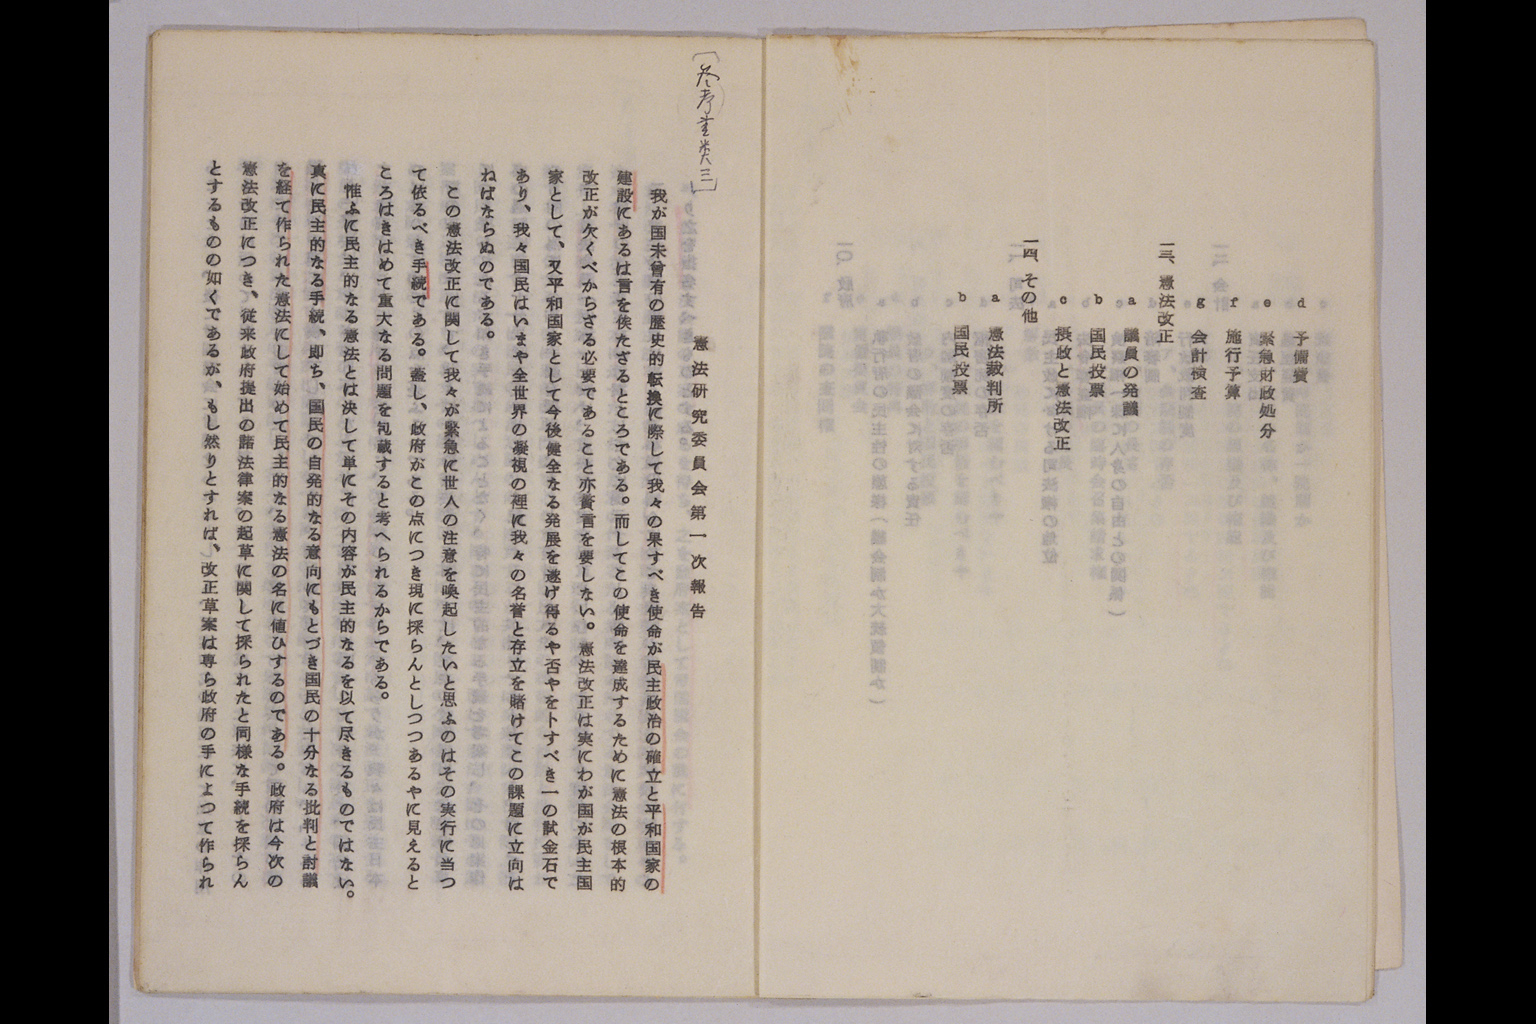 d 予備費
e 緊急財政処分
f 施行予算
g 会計検査
一三、憲法改正
a 議員の発議
b 国民投票
c 摂政と憲法改正
一四、その他
a 憲法裁判所
b 国民投票
〔参考書類三〕
憲法研究委員会第一次報告
我が国未曾有の歴史的転換に際して我々の果すべき使命が民主政治の確立と平和国家の
建設にあるは言を俟たざるところである。而してこの使命を達成するために憲法の根本的
改正が欠くべからざる必要であること亦贅言を要しない。憲法改正は実にわが国が民主国
家として、又平和国家として今後健全なる発展を遂げ得るや否やをトすべき一の試金石で
あり、我々国民はいまや全世界の凝視の裡に我々の名誉と存立を賭けてこの課題に立向は
ねばならぬのである。
この憲法改正に関して我々が緊急に世人の注意を喚起したいと思ふのはその実行に当つ
て依るべき手続である。蓋し、政府がこの点につき現に採らんとしつつあるやに見えると
ころはきはめて重大なる問題を包蔵すると考へられるからである。
惟ふに民主的なる憲法とは決して単にその内容が民主的なるを以て尽きるものではない。
真に民主的なる手続、即ち、国民の自発的なる意向にもとづき国民の十分なる批判と討議
を経て作られた憲法にして始めて民主的なる憲法の名に値ひするのである。政府は今次の
憲法改正につき、従来政府提出の諸法律案の起草に関して採られたと同様な手続を採らん
とするものの如くであるが、もし然りとすれば、改正草案は専ら政府の手によつて作られ